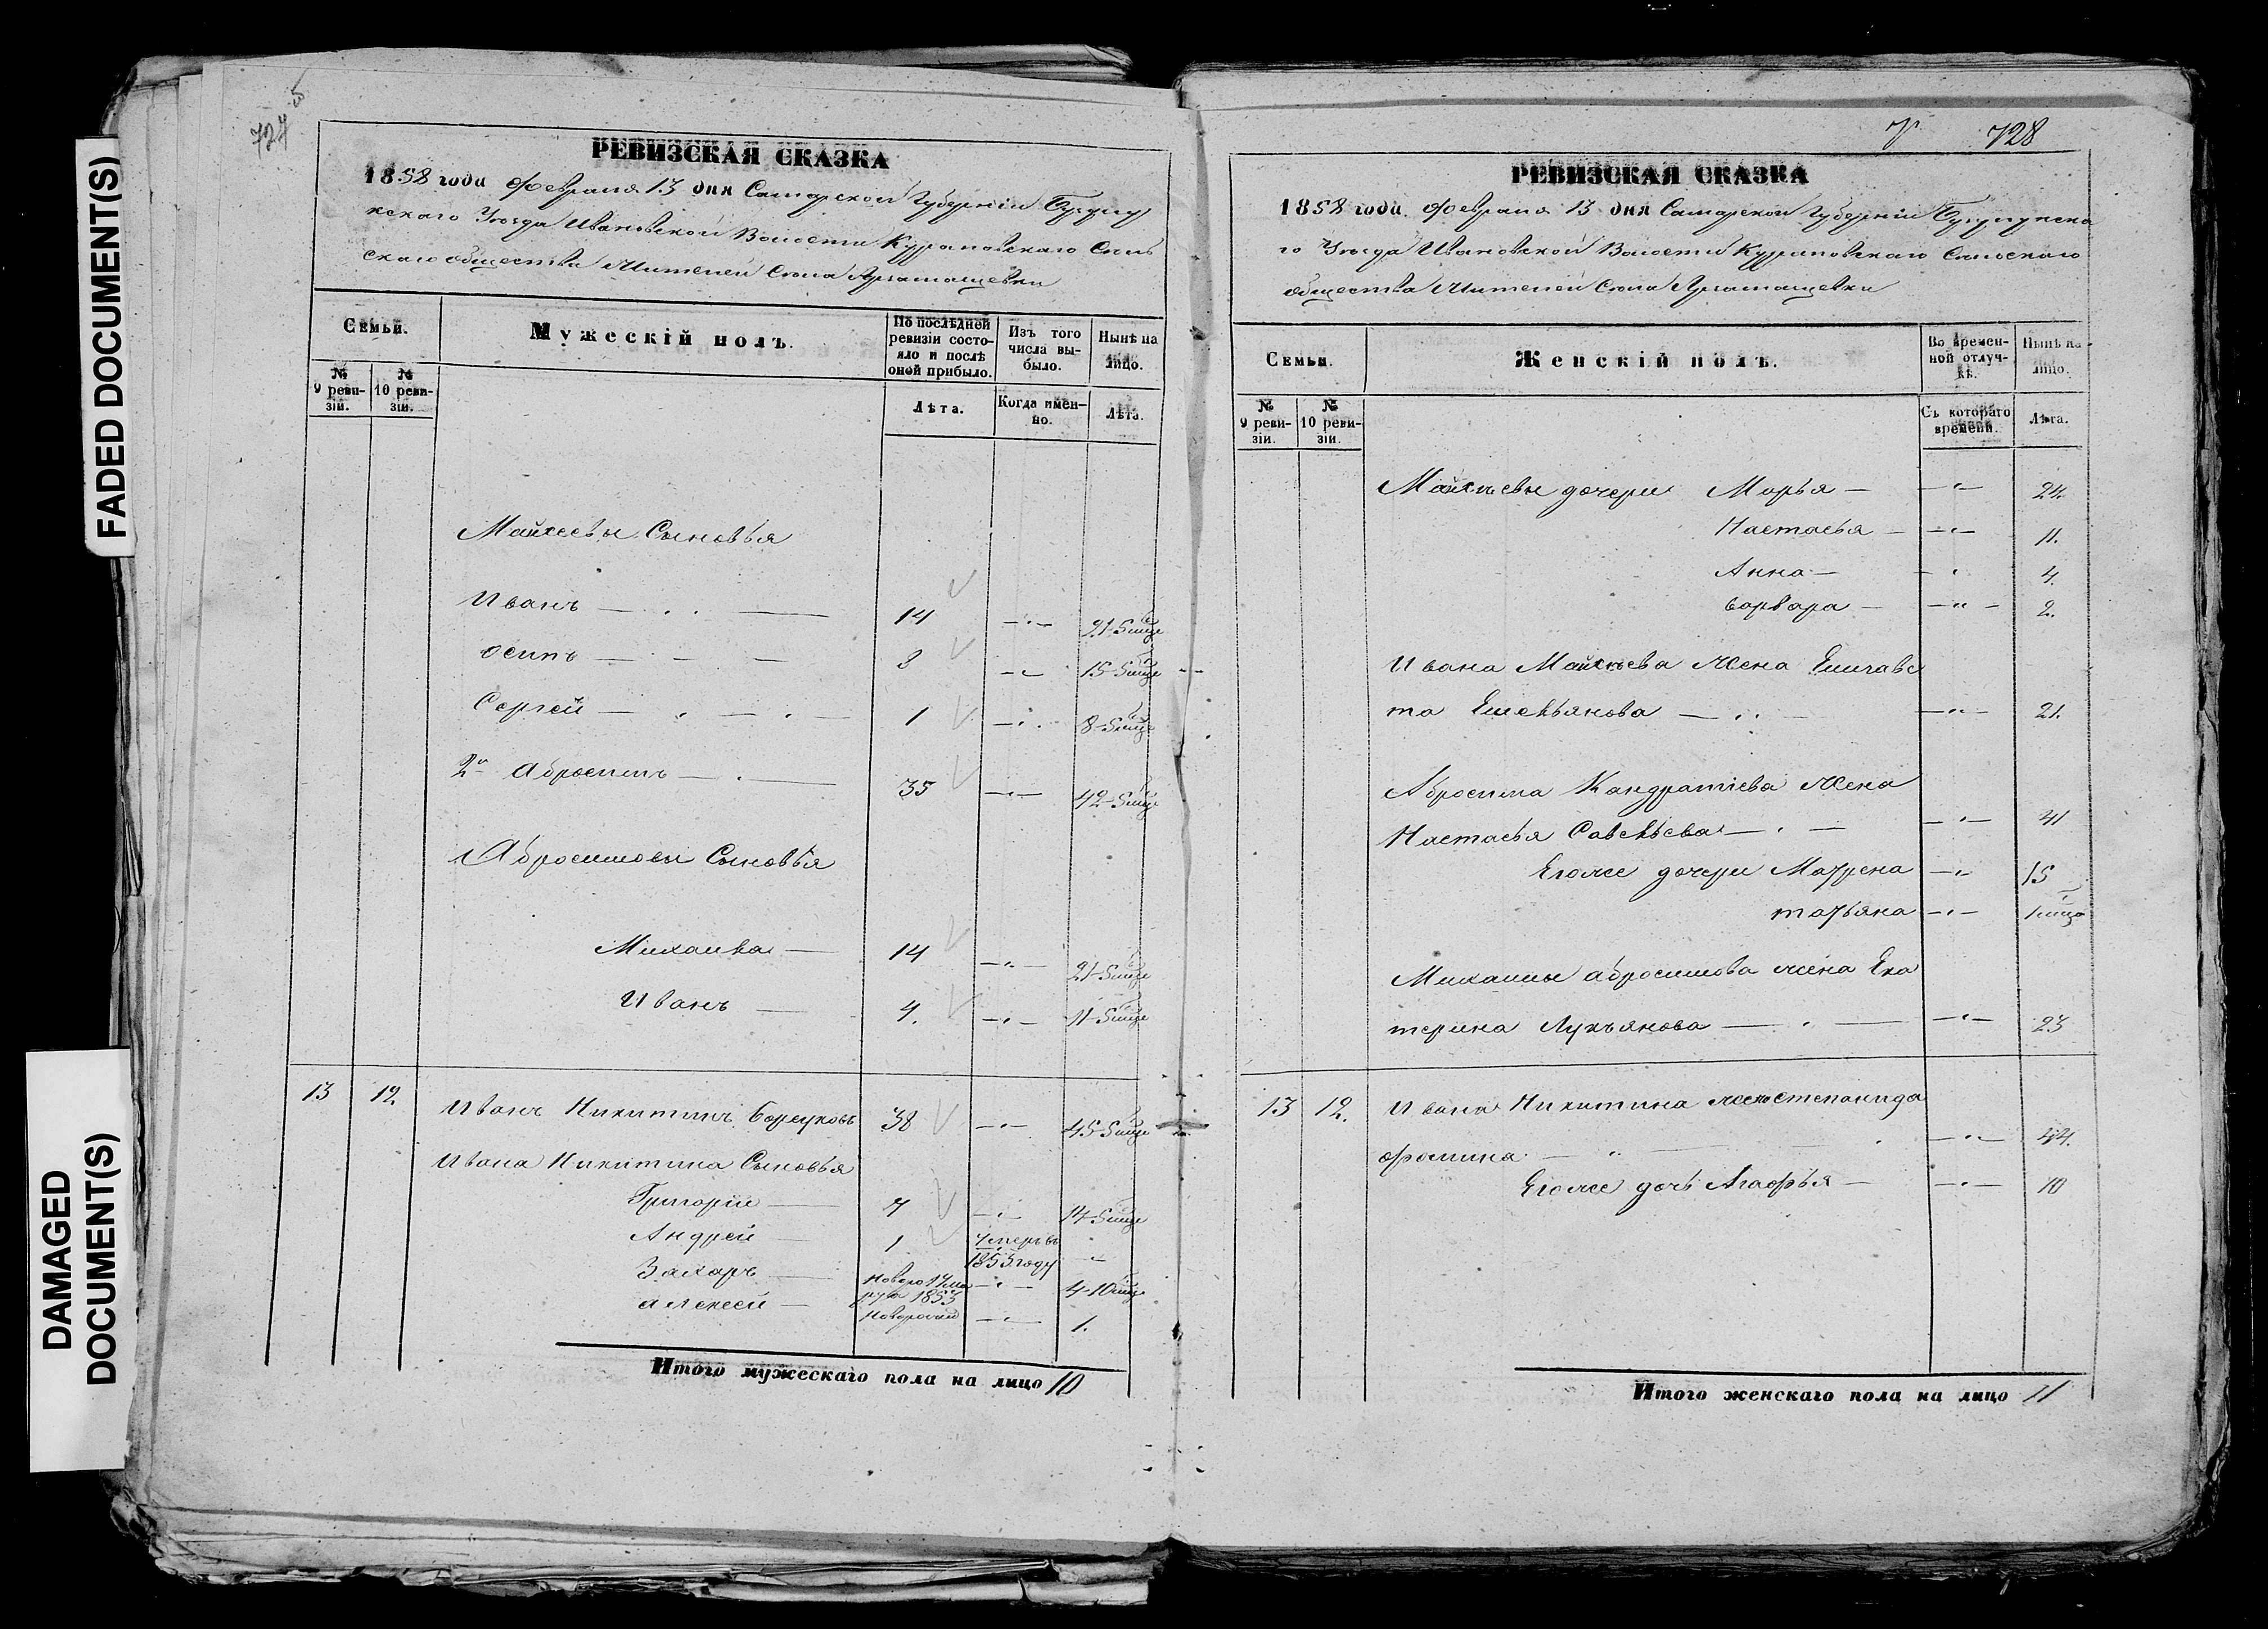 FADED DOCUMENT(S)
DAMAGED
DOCUMENT(S)
727
РЕВИЗСКАЯ СКАЗКА
1858 года Февраля 13 дня Самарской Губерніи Бугуру
скаго Уѣзда Ивановской Волости Сель
скаго общества Жителей Села
Семьи.
Мужескій полъ.
По послѣдней ревизіи состояло и послѣ оной прибыло.
Изъ того числа выбыло.
Нынѣ на лицо.
№ 9 ревизіи.
№ 10 ревизіи.
Лѣта.
Когда именно.
Лѣта.
Сыновья
Иванъ 14 21-5
Осипъ 8 15-5
Сергей 1 8-5
2й Абросимъ 35 42-5
Абросимовы Сыновья
Михайла 14 21-5
Иванъ 4. 11-5
13 12. Иванъ Никитинъ 38 45-5
Ивана Никитина Сыновья
Григорій 7 14-5
Андрей 1 Умеръ въ 1853 году
Захаръ 1853 4-10
Алексей 1.
Итого мужескаго пола на лицо 10
728
РЕВИЗСКАЯ СКАЗКА
1858 года Февраля 13 дня Самарской Губерніи
го Уѣзда Ивановской Волости Сельскаго
общества Жителей Села
Семьи.
Женскій полъ.
Во временной отлучкѣ.
Нынѣ на лицо.
№ 9 ревизіи.
№ 10 ревизіи.
Съ котораго времени.
Лѣта.
дочери Марья 24.
Настасья 11.
Анна 4.
Варвара 2.
Ивана жена Елизаве
та Емельянова 21.
Абросима Кандратіева жена
Настасья Савельева 41
Егоже дочери Матрена 15
татьяна
Михаилы абросимова жена Ека
терина Лукьянова 23
13 12. Ивана Никитина жена степанида
фомина 44.
Егоже дочь Агафья 10
Итого женскаго пола на лицо 11